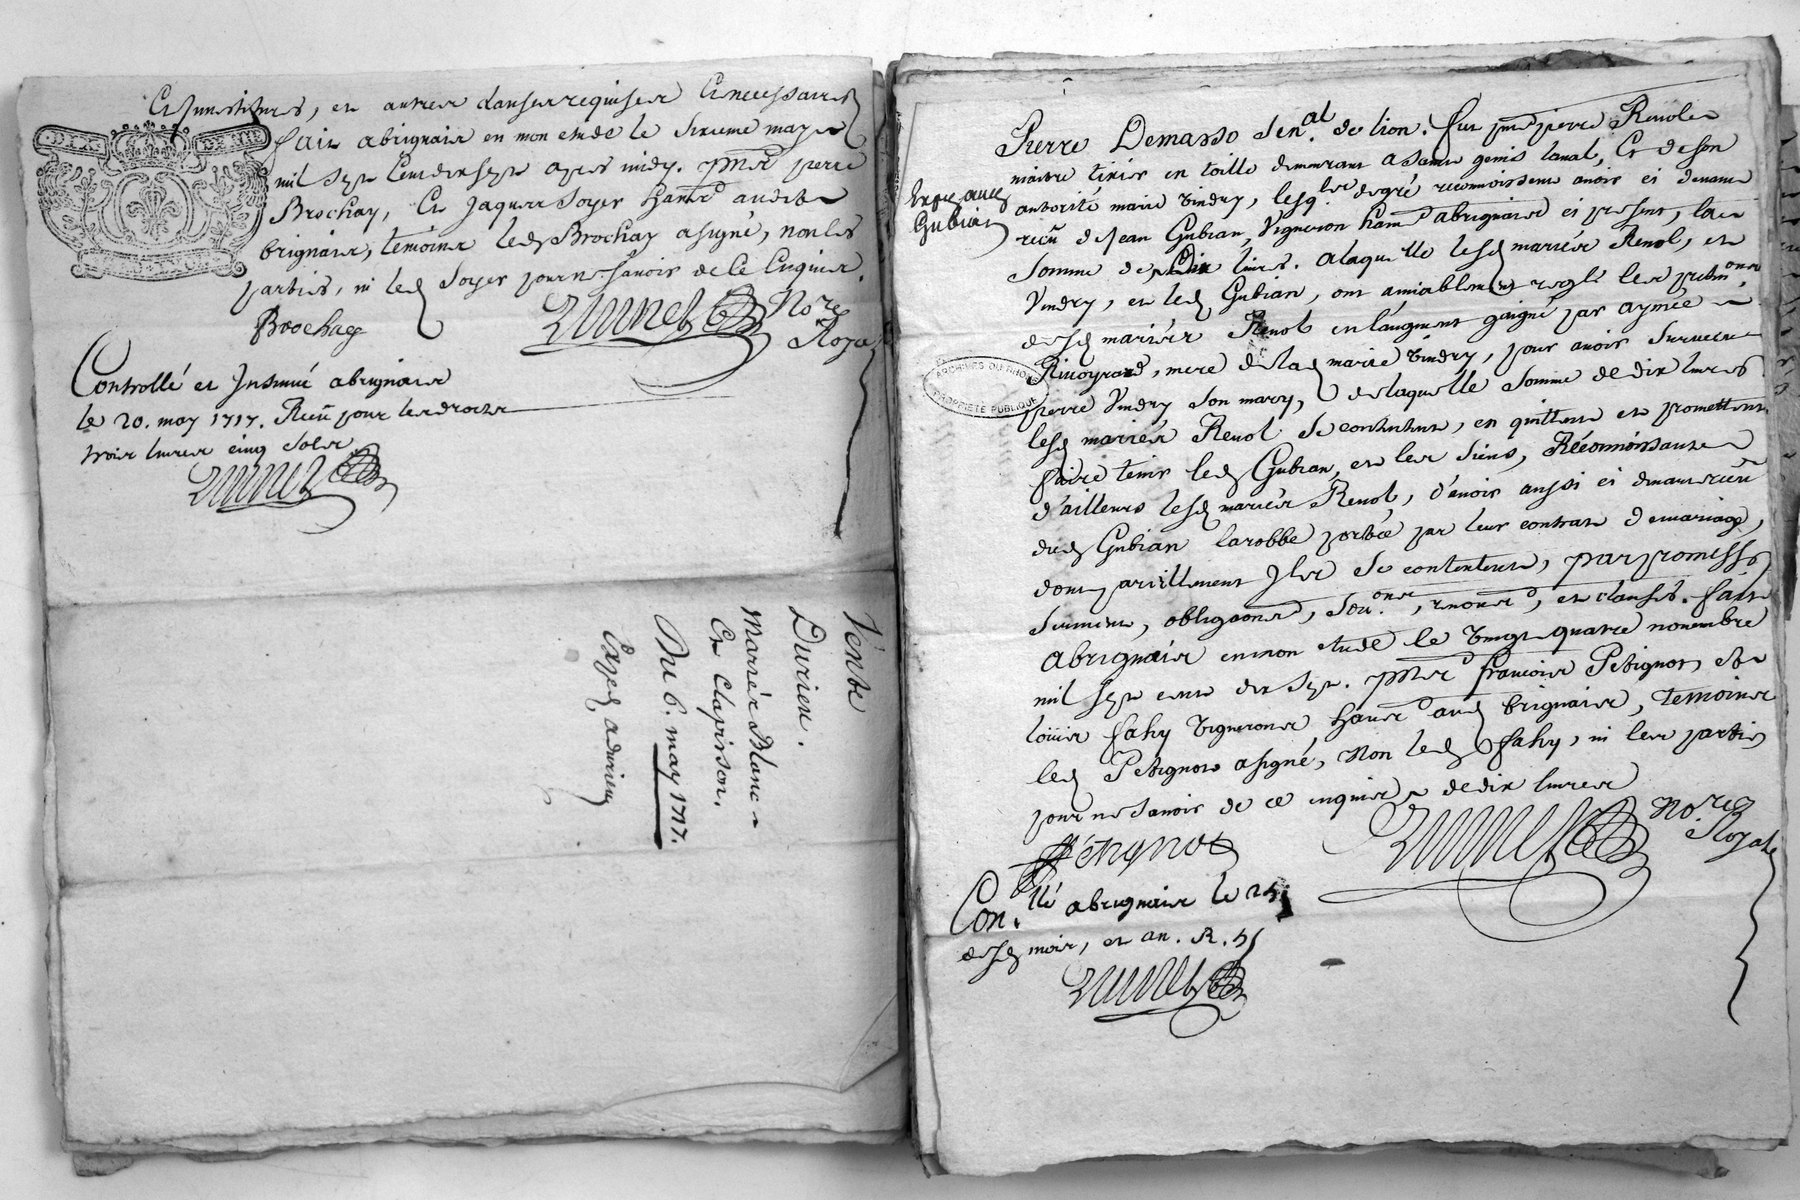 Et Junstitues, et autres clauses requises Et necessaires
fait a brignais en mon etude le sixieme may
mil sept cent dix sept apres midy. pnts pierre
Brochay, Et Jaques Soyer hants audit
brignais, temoins led Brochay a signé, non les
parties, ni led Soyer pour ne sçavoir de Ce Enquis.
Brochay
No.re
Royal
Controllé et Insinué a brignais
le 20. may 1717. Reçu pour les droits
trois livres cinq sols
Vente
Durieu.
Mariés Blanc
Et Clapisson.
Du 6. may 1717.
Expé a durieu
Pierre Demasso Sen.al de lion. fut pnt pierre Revol
maitre tixier en toille demeurant a saint genis laval, Et de son
autorité marie Vindry, lesq.ls de gré reconnoissent avoir ci devant
Expé aud
Gubian
reçu de Jean Gubian, Vigneron hant a brignais ci present, la
somme de dix livres. a laquelle lesd mariés Revol, et
Vindry, et led Gubian, ont amiablement reglé les pretni.ons
desd mariés Revol en l'augment gaigné par aymée
Rivoyrard, mere de lad marie Vindry, pour avoir survecu
pierre Vindry son mary, de laquelle somme de dix livres
ARCHIVES DU RHONE
PROPRIÉTÉ PUBLIQUE
lesd mariés Revol se contentent, en quittent et promettent
faire tenir led Gubian, et les siens, Réconnoissants
d'ailleurs lesd mariés Revol, d'avoir aussi ci devant reçu
dud Gubian la robbe portée par leur contrat de mariage,
dont pareillement Jls se contentent, par promesses
serment, obligaons, sou.ons, renons, et clauses. fait
a brignais en mon etude le vingt quatre novembre
mil sept cent dix sept. pnts françois Petignot et
loüis fahy vignerons hants aud brignais, temoins
led Petignot a signé, non led fahy, ni les parties
pour ne sçavoir de ce enquis de dix livres
Petignot
No.re
Royal
Con.llé a brignais le 25
desd mois, et an. R. 5s